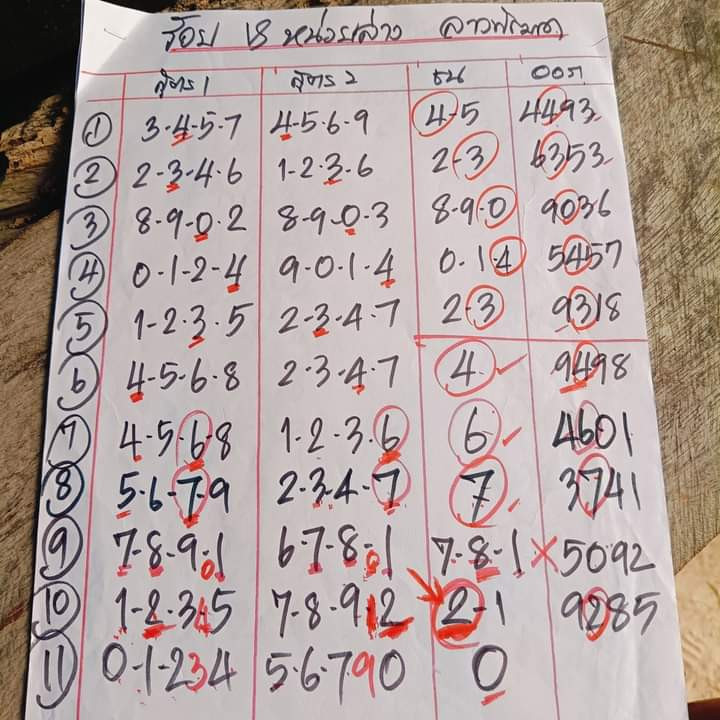 ร้อย VS หน่วยล่าง ลาวพัฒนา
สูตร 1 สูตร 2 ชน ออก
① 3-4-5-7 4-5-6-9 4-5 4493
② 2-3-4-6 1-2-3-6 2-3 6353
③ 8-9-0-2 8-9-0-3 8-9-0 9036
④ 0-1-2-4 9-0-1-4 0-1-4 5457
⑤ 1-2-3-5 2-3-4-7 2-3 9318
⑥ 4-5-6-8 2-3-4-7 4 ✓ 9498
⑦ 4-5-6-8 1-2-3-6 6 ✓ 4601
⑧ 5-6-7-9 2-3-4-7 7 ✓ 3741
⑨ 7-8-9-0-1 6-7-8-0-1 7-8-1 × 5092
⑩ 1-2-3-4-5 7-8-9-1-2 2-1 9285
⑪ 0-1-234 5-6-790 0